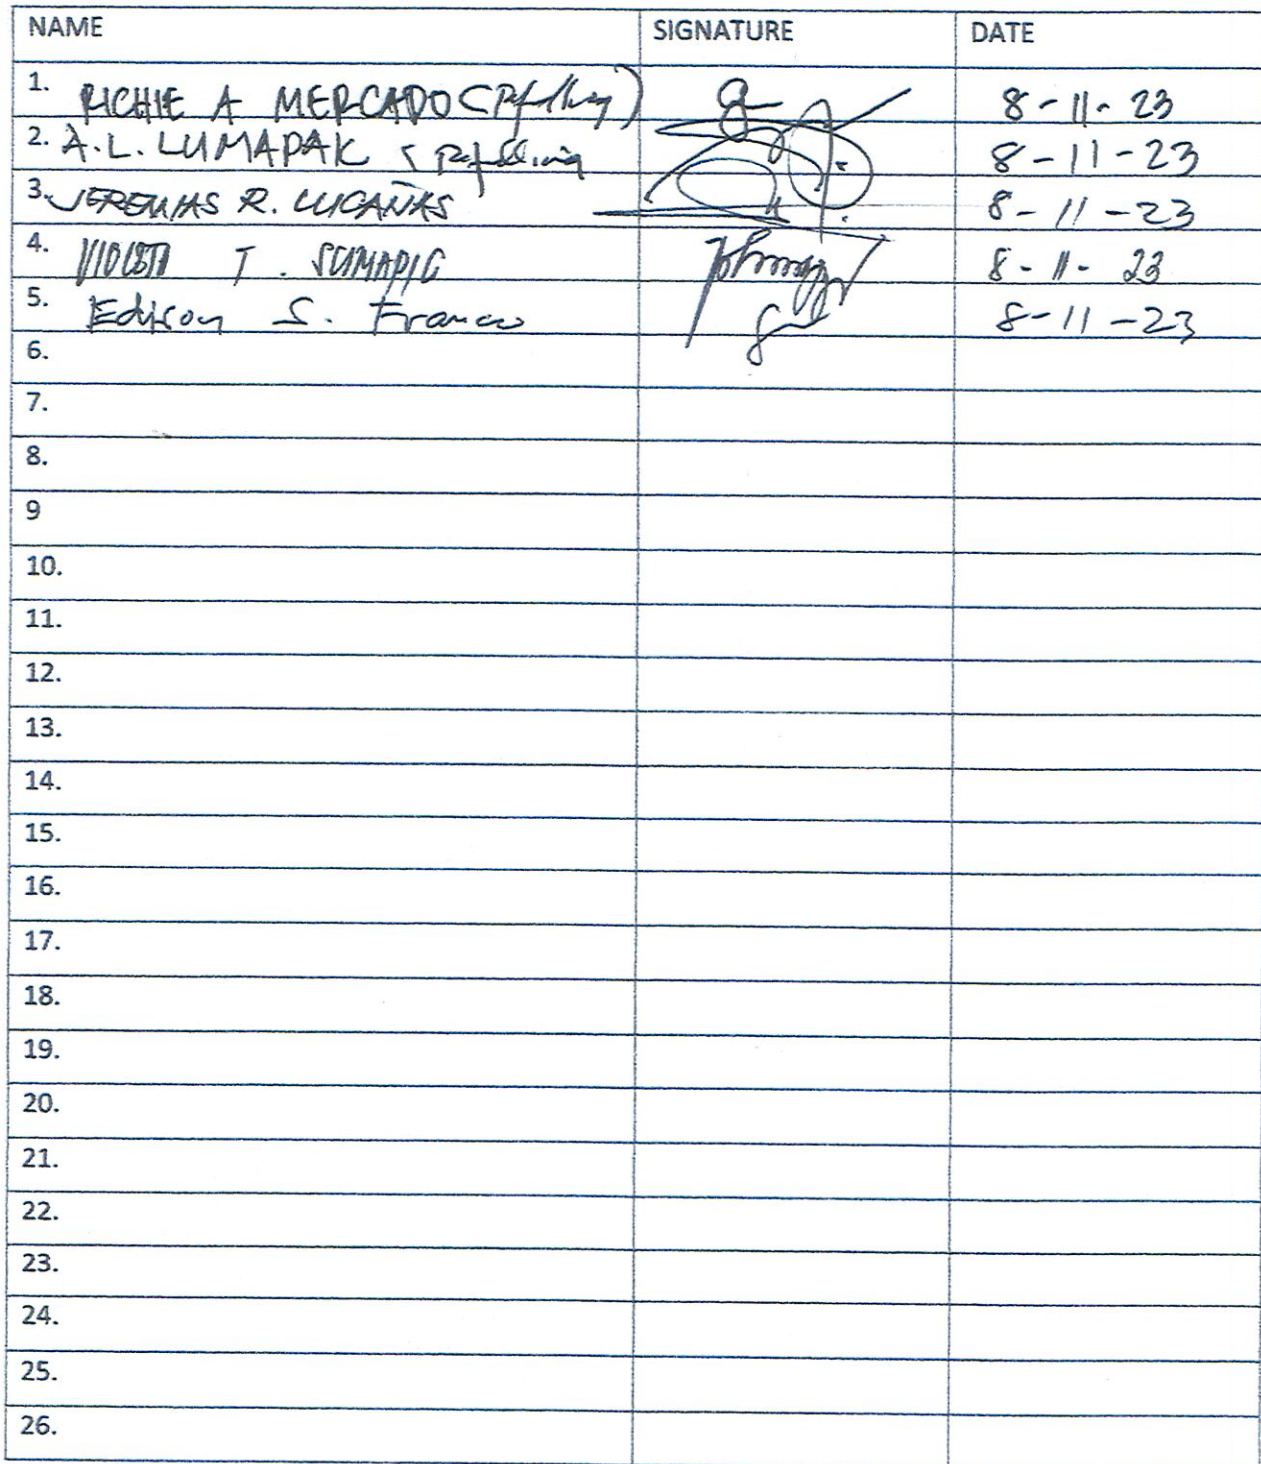 NAME SIGNATURE DATE
1. RICHIE A MERCADO (Refilling) 8-11-23
2. A.L. LUMAPAK (Refilling 8-11-23
3. JEREMIAS R. LUCAÑAS 8-11-23
4. VIOLETA T. SUMAPIG 8-11-23
5. Edison S. Franco 8-11-23
6.
7.
8.
9
10.
11.
12.
13.
14.
15.
16.
17.
18.
19.
20.
21.
22.
23.
24.
25.
26.